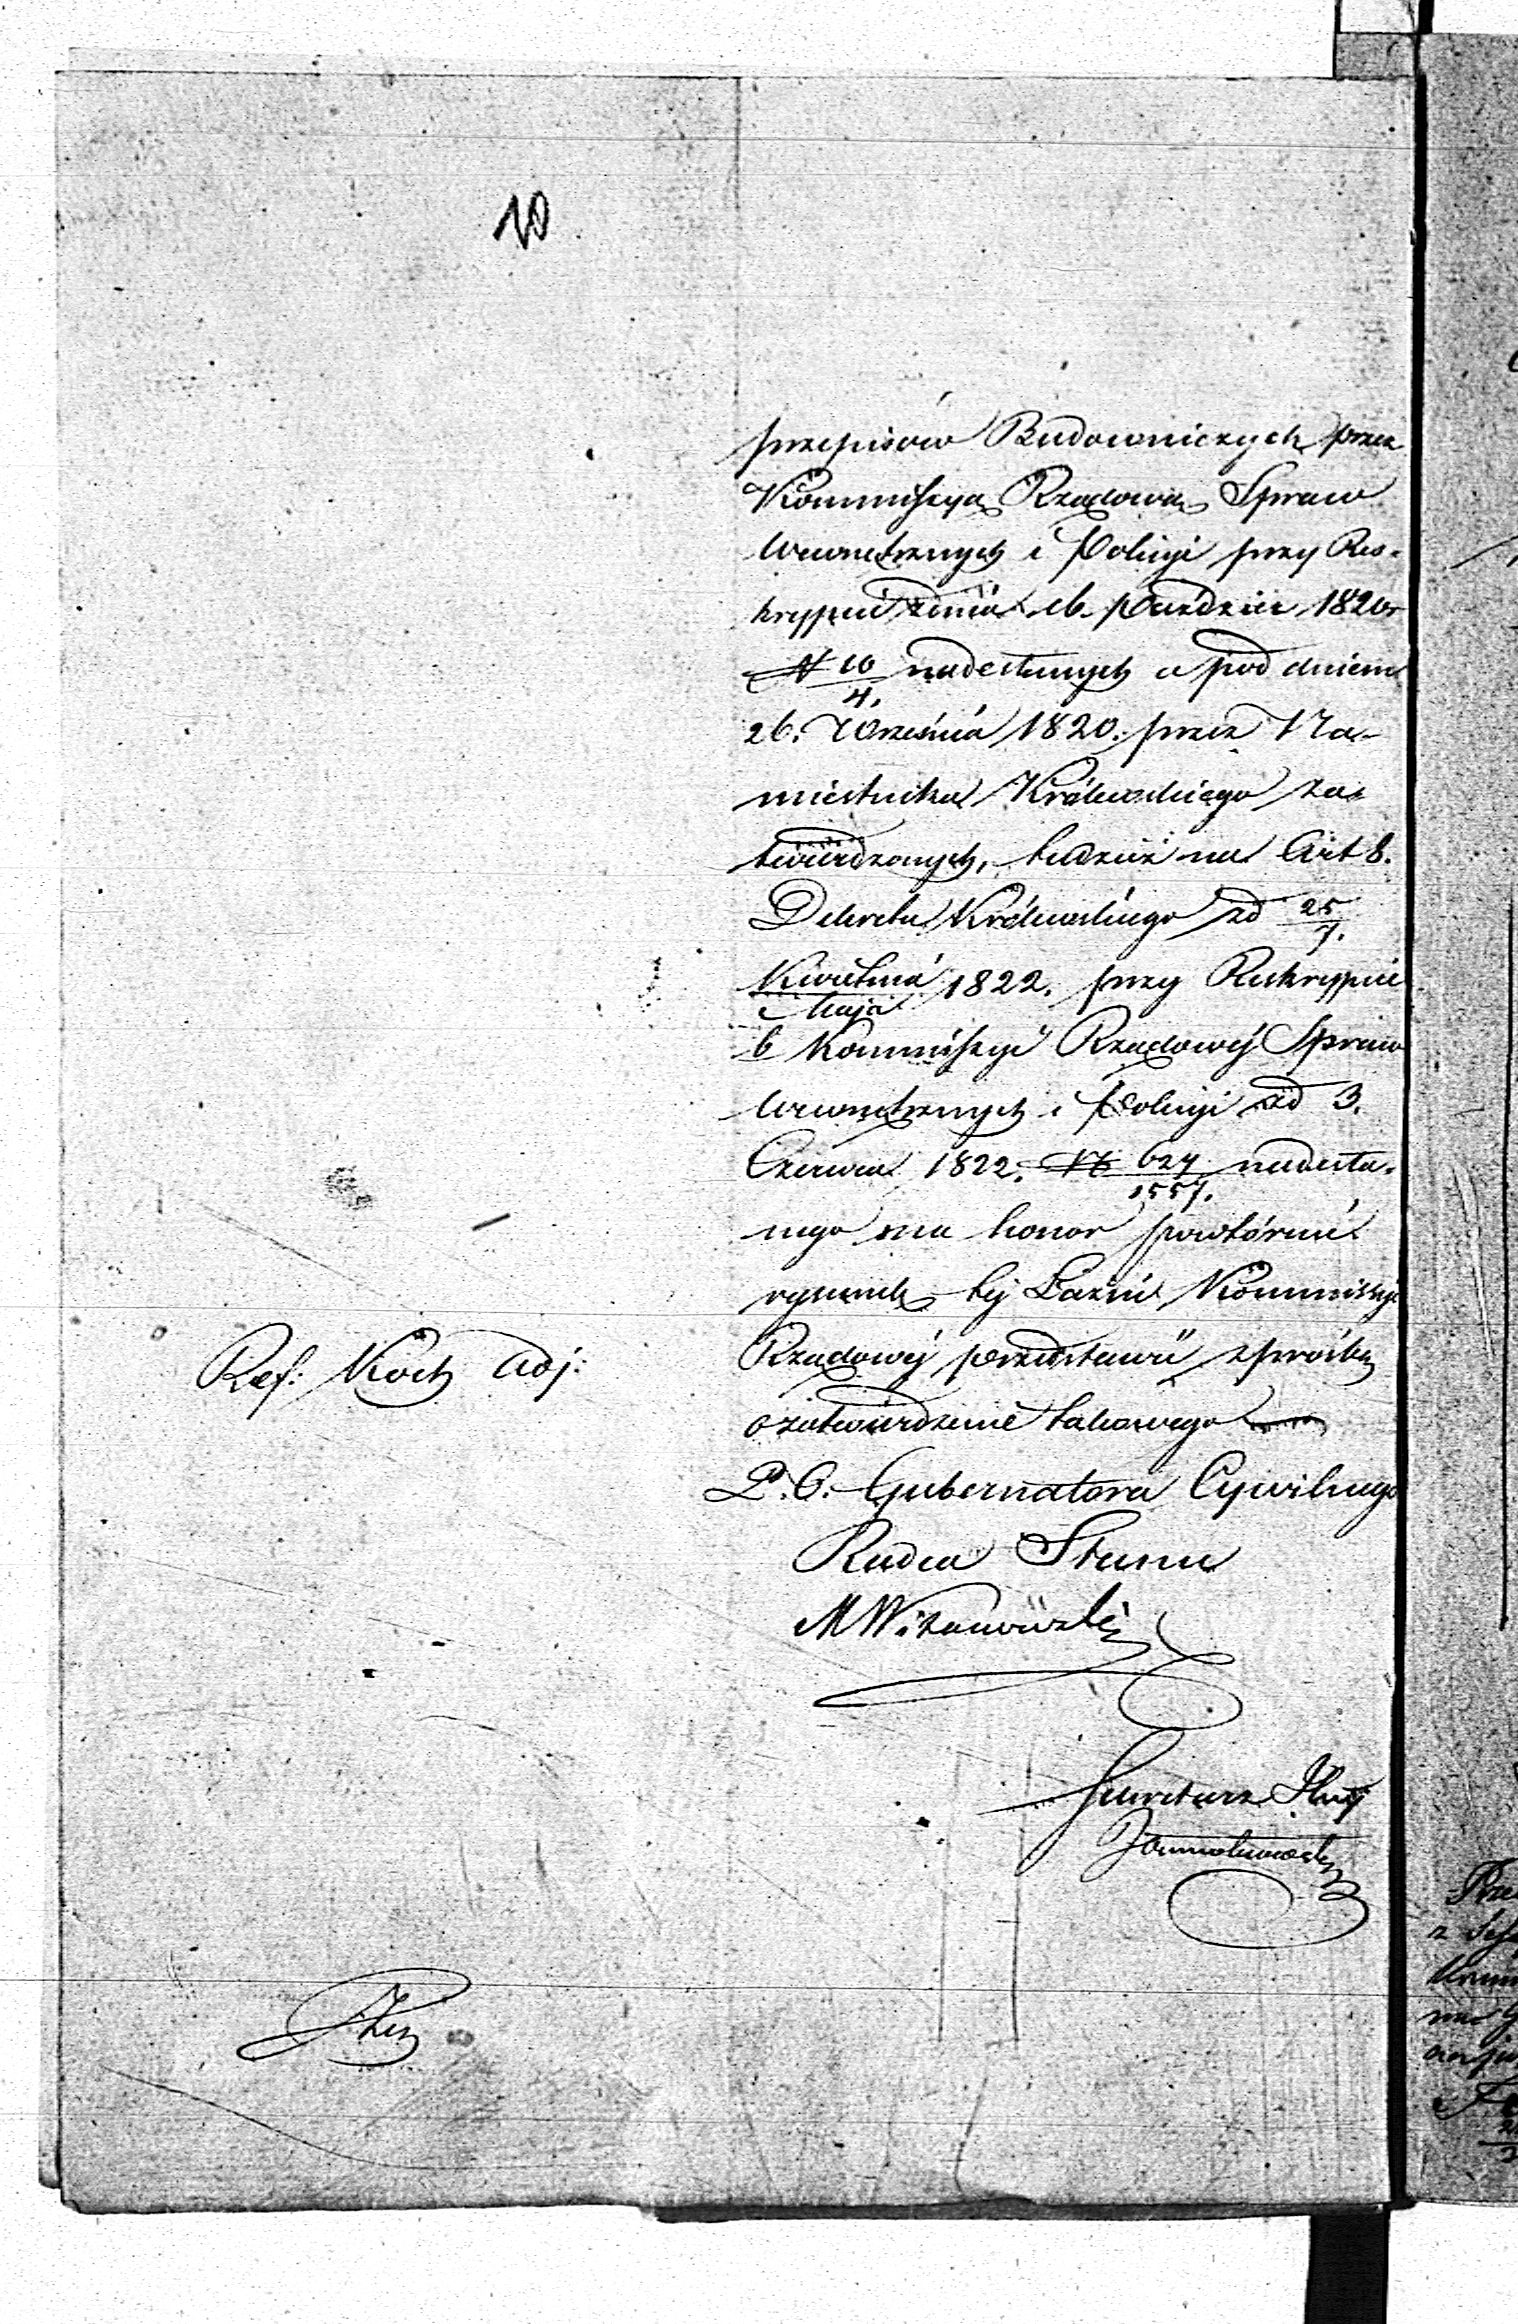 10
przepisów Budowniczych przez
Kommissyą Rządową Spraw
Wewnętrznych i Policyi przy Res-
krypcie z dnia 16. Paździer 1820r
N 10/4. nadesłanych a pod dniem
26. Września 1820. przez Na-
miestnika Królewskiego za-
twierdzonych, tudzież na Art 8.
Dekretu Królewskiego zd 25/7.
Kwietnia/Maja 1822. przy Reskrypcie
Kommissyi Rządowéj Spraw
Wewnętrznych i Policyi zd 3.
Czerwca 1822. N 624/1557. nadesła-
nego ma honor powtórnie
rysunek téj Łazni Kommissyi
Rządowéj przedstawić z prośbą
o zatwierdzenie takowego
Ref: Koch Adj:
P. O. Gubernatora Cywilnego
Radca Stanu
Sekretarz Jlny